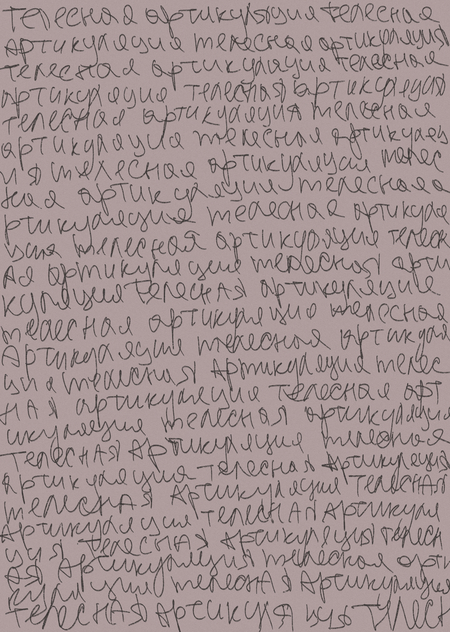 телесная артикуляция телесная
артикуляция телесная артикуляция
телесная артикуляция телесная
артикуляция телесная артикуляция
телесная артикуляция телесная
артикуляция телесная артикуляц
ия телесная артикуляция телес
ная артикуляция телесная а
ртикуляция телесная артикуля
ция телесная артикуляция телесн
ая артикуляция телесная арти
куляция телесная артикуляция
телесная артикуляция телесная
Артикуляция телесная артикуля
ция телесная Артикуляция телес
ная артикуляция телесная арт
икуляция телесная артикуляция
телесная Артикуляция телесная
артикуляция телесная артикуляция
телесная Артикуляция телесная
Артикуляция телесная Артикуля
ция телесная Артикуляция телесн
ая Артикуляция телесная арти
куляция телесная Артикуляция
телесная Артикуля ция телесн